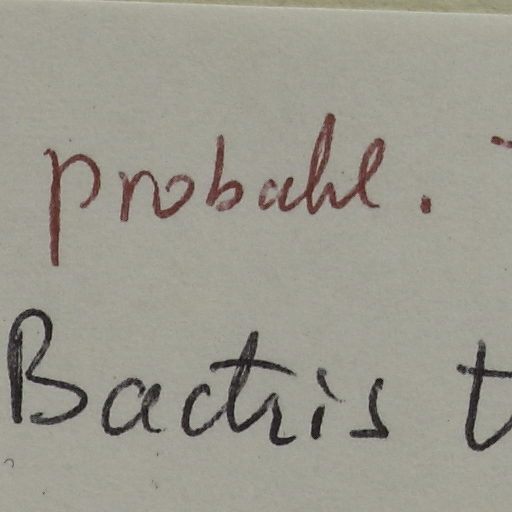 probabl.
Bactris t